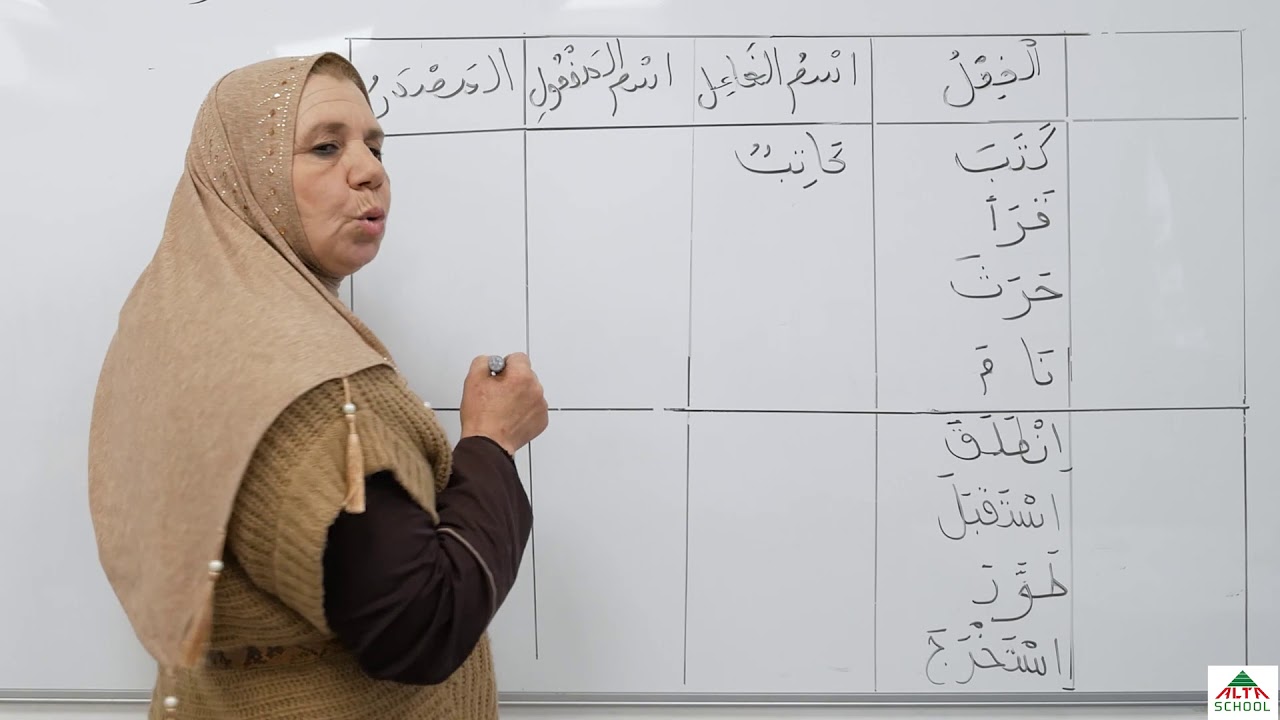 الْفِعْلُ اسْمُ الفَاعِلِ اسْمُ المَفْعُولِ المَصْدَرُ
كَتَبَ كَاتِبٌ
قَرَأَ
حَرَثَ
نَامَ
اِنْطَلَقَ
اسْتَقْبَلَ
طَوَّرَ
اِسْتَخْرَجَ
ALTA
SCHOOL